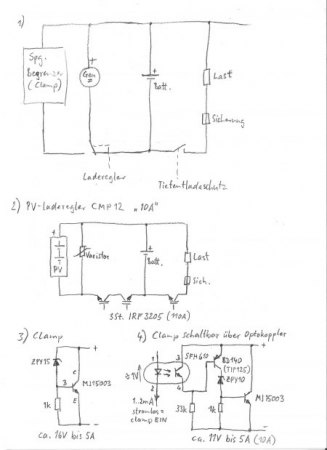 1)
Spg.
Begrenzer
(Clamp)
+
Gen
+
Batt.
Last
Sicherung
Laderegler
Tiefentladeschutz
2) PV-Laderegler CMP12 „10A"
+
PV
Varistor
+
Batt.
Last
Sich.
3 St. IRF3205 (110A)
3) Clamp
+
ZPY15
3
C
MJ15003
E
1k
-
ca. 16V bis 5A
4) Clamp schaltbar über Optokoppler
+
1
3
SFH610
BD140
(TIP125)
ZPY10
2
4
MJ15003
1..2mA
stromlos =
clamp EIN
33k
1k
-
ca. 11V bis 5A (10A)